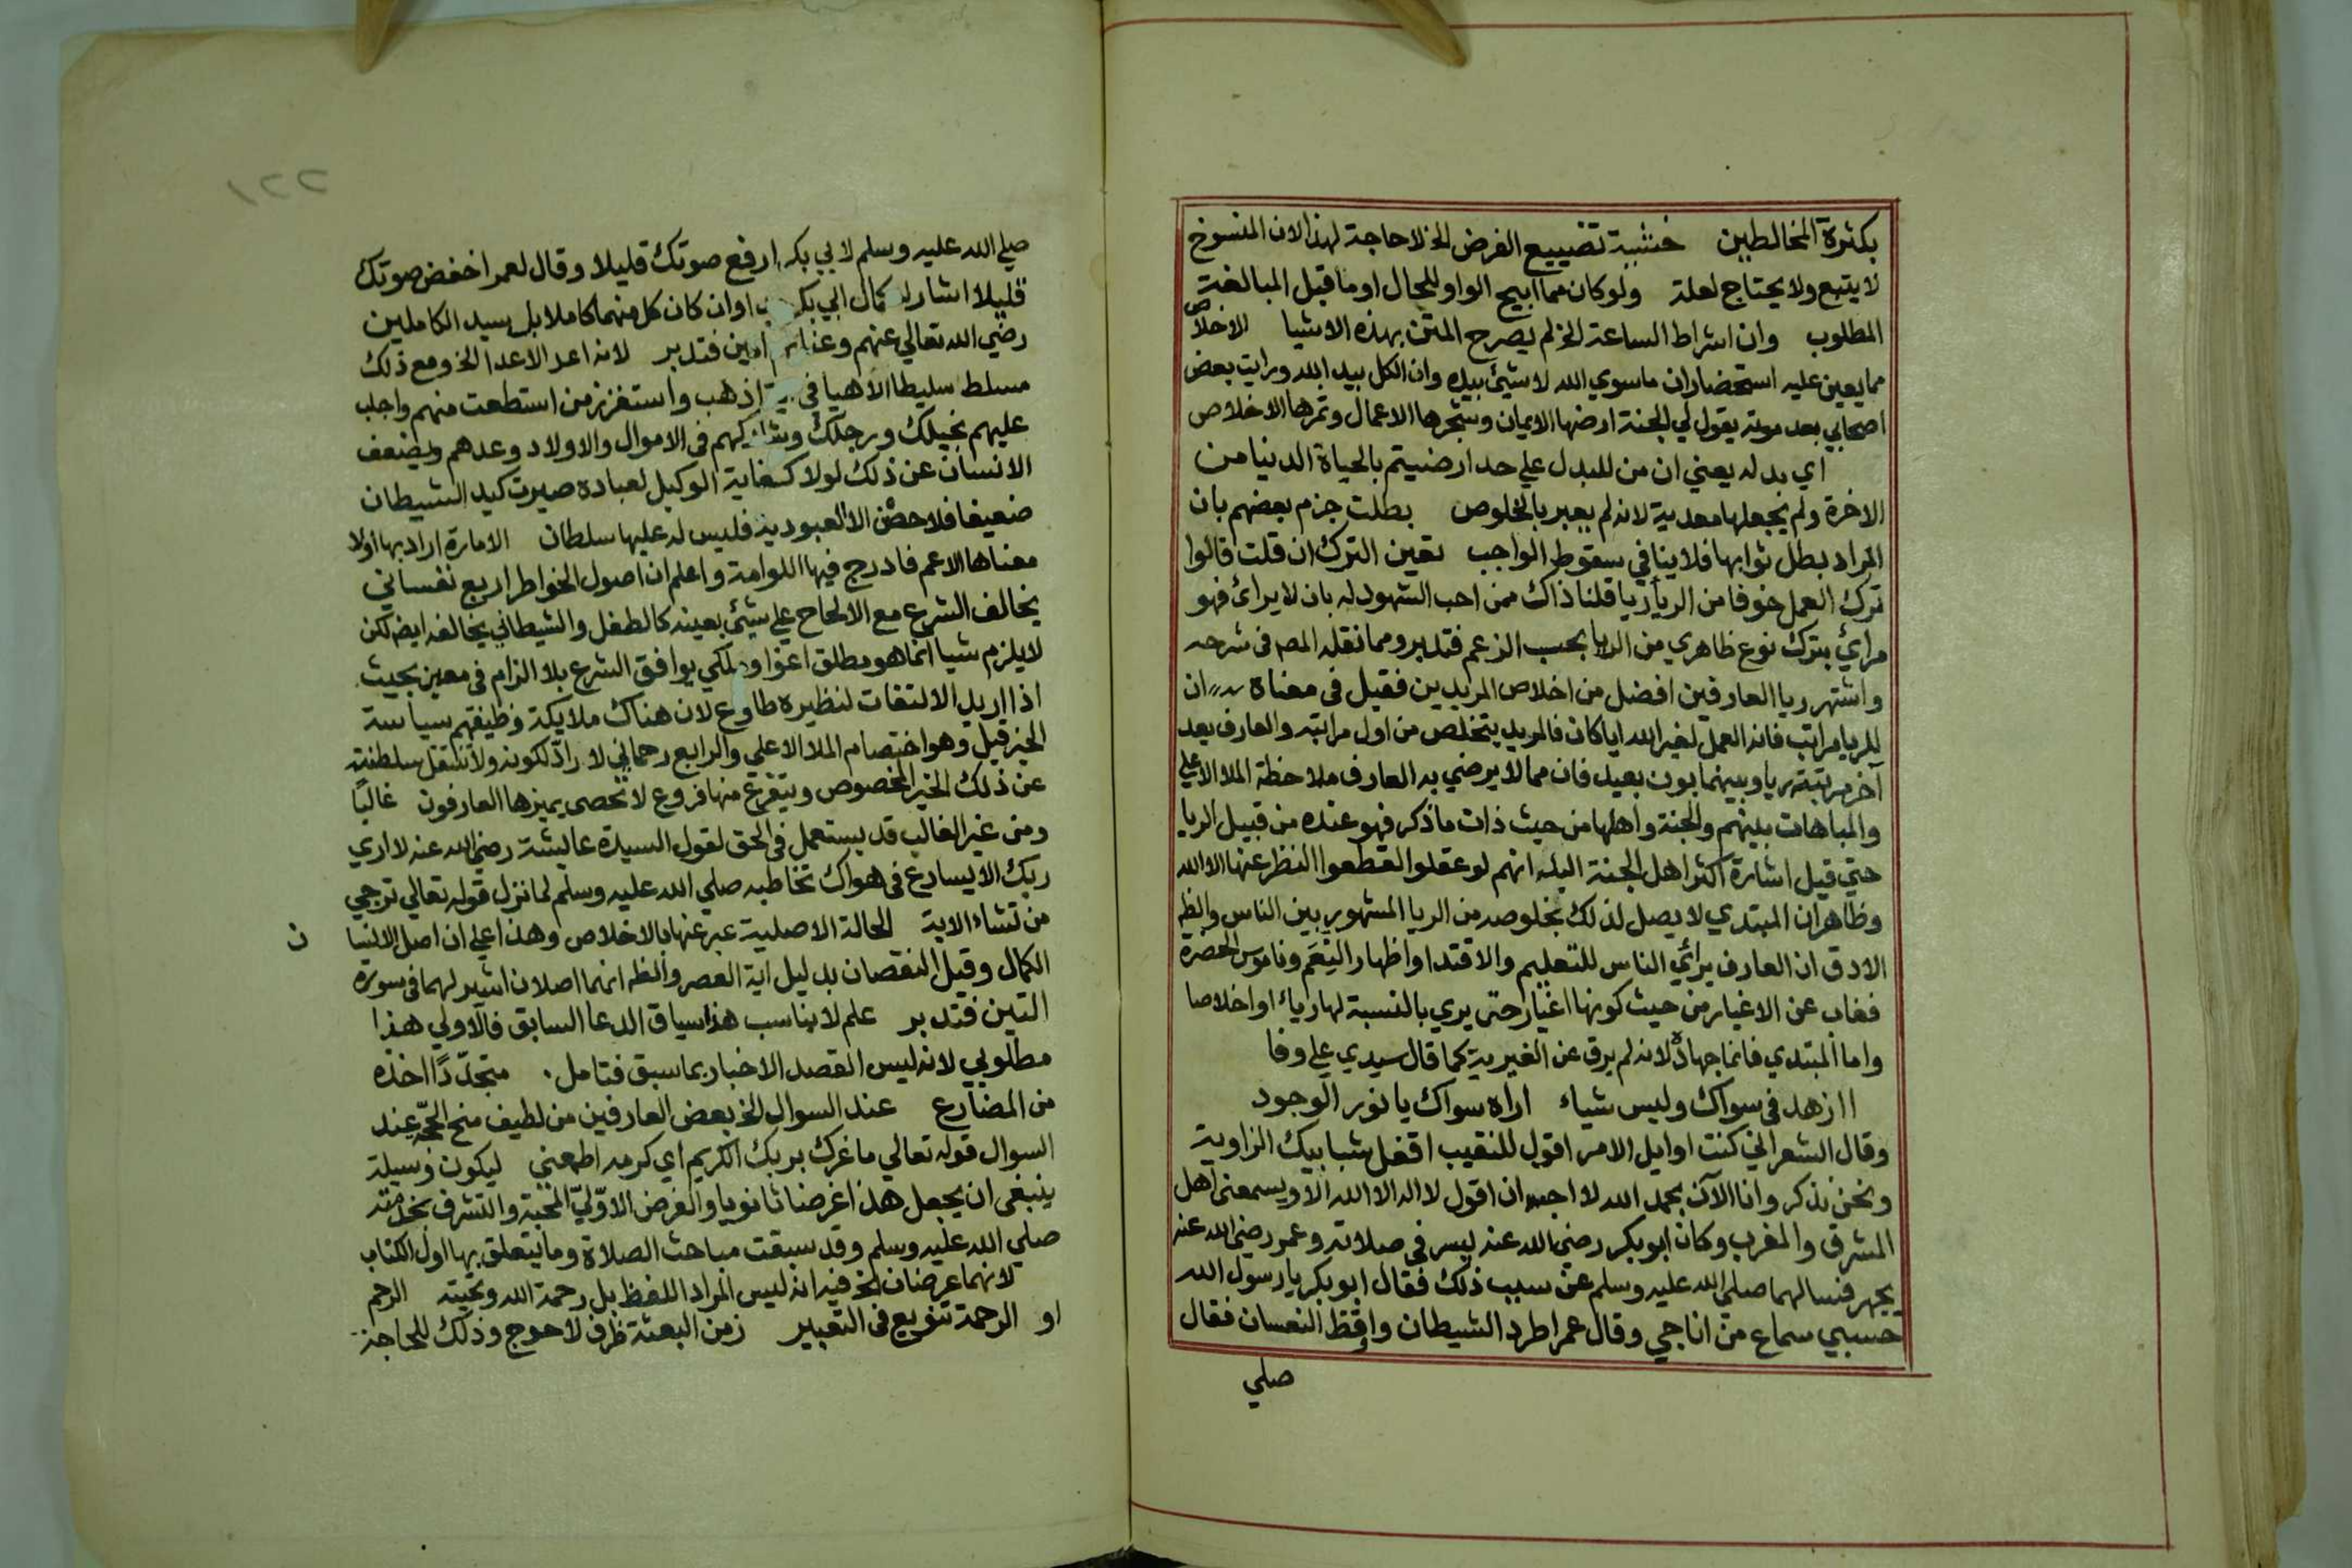 بكثرة المخالطين خشية تضييع الفرض الخ لاحاجة لهذا لان المنسوخ
لا يتبع ولا يحتاج لعلة ولو كان مما ابيح الواو للحال او ما قبل المبالغة
المطلوب وان اشراط الساعة الخ لم يصرح المتن بهذه الاشيا الاخلاص
مما يعين عليه استحضار ان ما سوي الله لا شيئ بيده وان الكل بيد الله ورايت بعض
اصحابي بعد موته يقول لي الجنة ارضها الايمان وشجرها الاعمال وثمرها الاخلاص
اي بدله يعني ان من للبدل علي حد ارضيتم بالحياة الدنيا من
الاخرة ولم يجعلها معدية لانه لم يعبر بالخلوص بطلت جزم بعضهم بان
المراد بطل ثوابها فلا ينافي سقوط الواجب تعين الترك ان قلت قالوا
ترك العمل خوفا من الريا ريا قلنا ذاك ممن احب الشهود له بان لا يرائ فهو
مرائي بترك نوع ظاهري من الريا بحسب الزعم فتدبر ومما نقله المصـ في شرحه
واشتهر ريا العارفين افضل من اخلاص المريدين فقيل في معناه ان
للريا مراتب فانه العمل لغير الله ايا كان فالمريد يتخلص من اول مراتبه والعارف يعد
آخر مرتبة ريا وبينهما بون بعيد فان مما لا يرضي به العارف ملاحظة الملا الاعلي
والمباهات بينهم والجنة واهلها من حيث ذات ما ذكر فهو عنده من قبيل الريا
حتي قيل اشارة اكثر اهل الجنة البله انهم لو عقلوا لقطعوا النظر عنها الا الله
وظاهر ان المبتدي لا يصل لذلك بخلوصه من الريا المشهور بين الناس والظ
الادق ان العارف يرائي الناس للتعليم والاقتدا واظهار النعم وناموس الحضرة
فغاب عن الاغيار من حيث كونها اغيار حتى يري بالنسبة لها رياء او اخلاصا
واما المبتدي فانما جهاده لانه لم يرق عن الغيرية كما قال سيدي علي وفا
اازهد في سواك وليس شياء اراه سواك يا نور الوجود
وقال الشعراني كنت اوايل الامر اقول للنقيب اقفل شبابيك الزاوية
ونحن نذكر وانا الآن بحمد الله لا احب ان اقول لا اله الا الله الا ويسمعني اهل
المشرق والمغرب وكان ابو بكر رضي الله عنه يسر في صلاته وعمر رضي الله عنه
يجهر فسالهما صلي الله عليه وسلم عن سبب ذلك فقال ابو بكر يا رسول الله
حسبي سماع من اناجي وقال عمر اطرد الشيطان واوقظ النعسان فقال
صلي
٢٢١
صلي الله عليه وسلم لابي بكر ارفع صوتك قليلا وقال لعمر اخفض صوتك
قليلا اشار كمال ابي بكر وان كان كل منهما كاملا بل سيد الكاملين
رضي الله تعالي عنهم وعنا امين فتدبر لانه اعد الاعدا الخ ومع ذلك
مسلط سليط اذهب واستفزز من استطعت منهم واجلب
عليهم بخيلك ورجلك وشاركهم في الاموال والاولاد وعدهم ويضعف
الانسان عن ذلك لولا كفاية الوكيل لعباده صيرت كيد الشيطان
ضعيفا فلا حصن الا العبودية فليس له عليها سلطان الامارة اراد بها اولا
معناها الاعم فادرج فيها اللوامة واعلم ان اصول الخواطر اربع نفساني
يخالف الشرع مع الالحاح علي شيئ بعينه كالطفل والشيطاني يخالفه ايضا لكن
لا يلزم شيا انما هو مطلق اغوا وملكي يوافق الشرع بلا الزام في معين بحيث
اذا اريد الالتفات لنظيره طاوع لان هناك ملايكة وظيفتهم سياسة
الخير قيل وهو اختصام الملا الاعلي والرابع رحماني لا رادّ لكونه ولا تنتقل سلطنته
عن ذلك الخير المخصوص ويتفرع منها فروع لا تحصى يميزها العارفون غالبًا
ومن غير الغالب قد يستعمل في الحق لقول السيدة عايشة رضي الله عنه لا اري
ربك الا يسارع في هواك تخاطبه صلي الله عليه وسلم لما نزل قوله تعالي ترجي
من تشاء الاية الحالة الاصلية عبر عنها بالاخلاص وهذا علي ان اصل الانسا ن
الكمال وقيل النقصان بدليل اية العصر والظـ انهما اصلان اشير لهما في سورة
التين فتدبر علم لا يناسب هذا سياق الدعا السابق فالاولي هذا
مطلوبي لانه ليس القصد الاخبار بما سبق فتامل . متجدّدًا اخذه
من المضارع عند السوال الخ بعض العارفين من لطيف منح الحجّة عند
السوال قوله تعالي ما غرك بربك الكريم اي كرمه اطمعني ليكون وسيلة
ينبغي ان يجعل هذا غرضا ثانويا والغرض الاوّليّ المحبة والتشرف بخدمته
صلي الله عليه وسلم وقد سبقت مباحث الصلاة وما يتعلق بها اول الكتاب
لانهما عرضان الخ فيه انه ليس المراد اللفظ بل رحمة الله وتحيته الرحم
او الرحمة تنويع في التعبير زمن البعثة ظرف لاحوج وذلك للحاجة